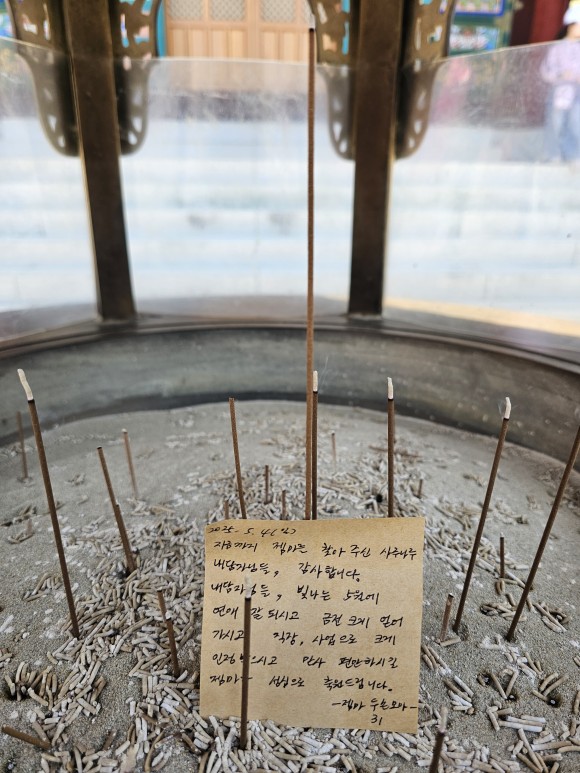 2025. 5. 4(일)
지금까지 젬마를 찾아 주신 사주나루
내담자님들, 감사합니다.
내담자님들, 빛나는 5월에
연애 잘 되시고 금전 크게 얻어
가시고 직장, 사업으로 크게
인정받으시고 만사 편안하시길
젬마가 성심으로 축원드립니다.
-젬마 두손모아-
31